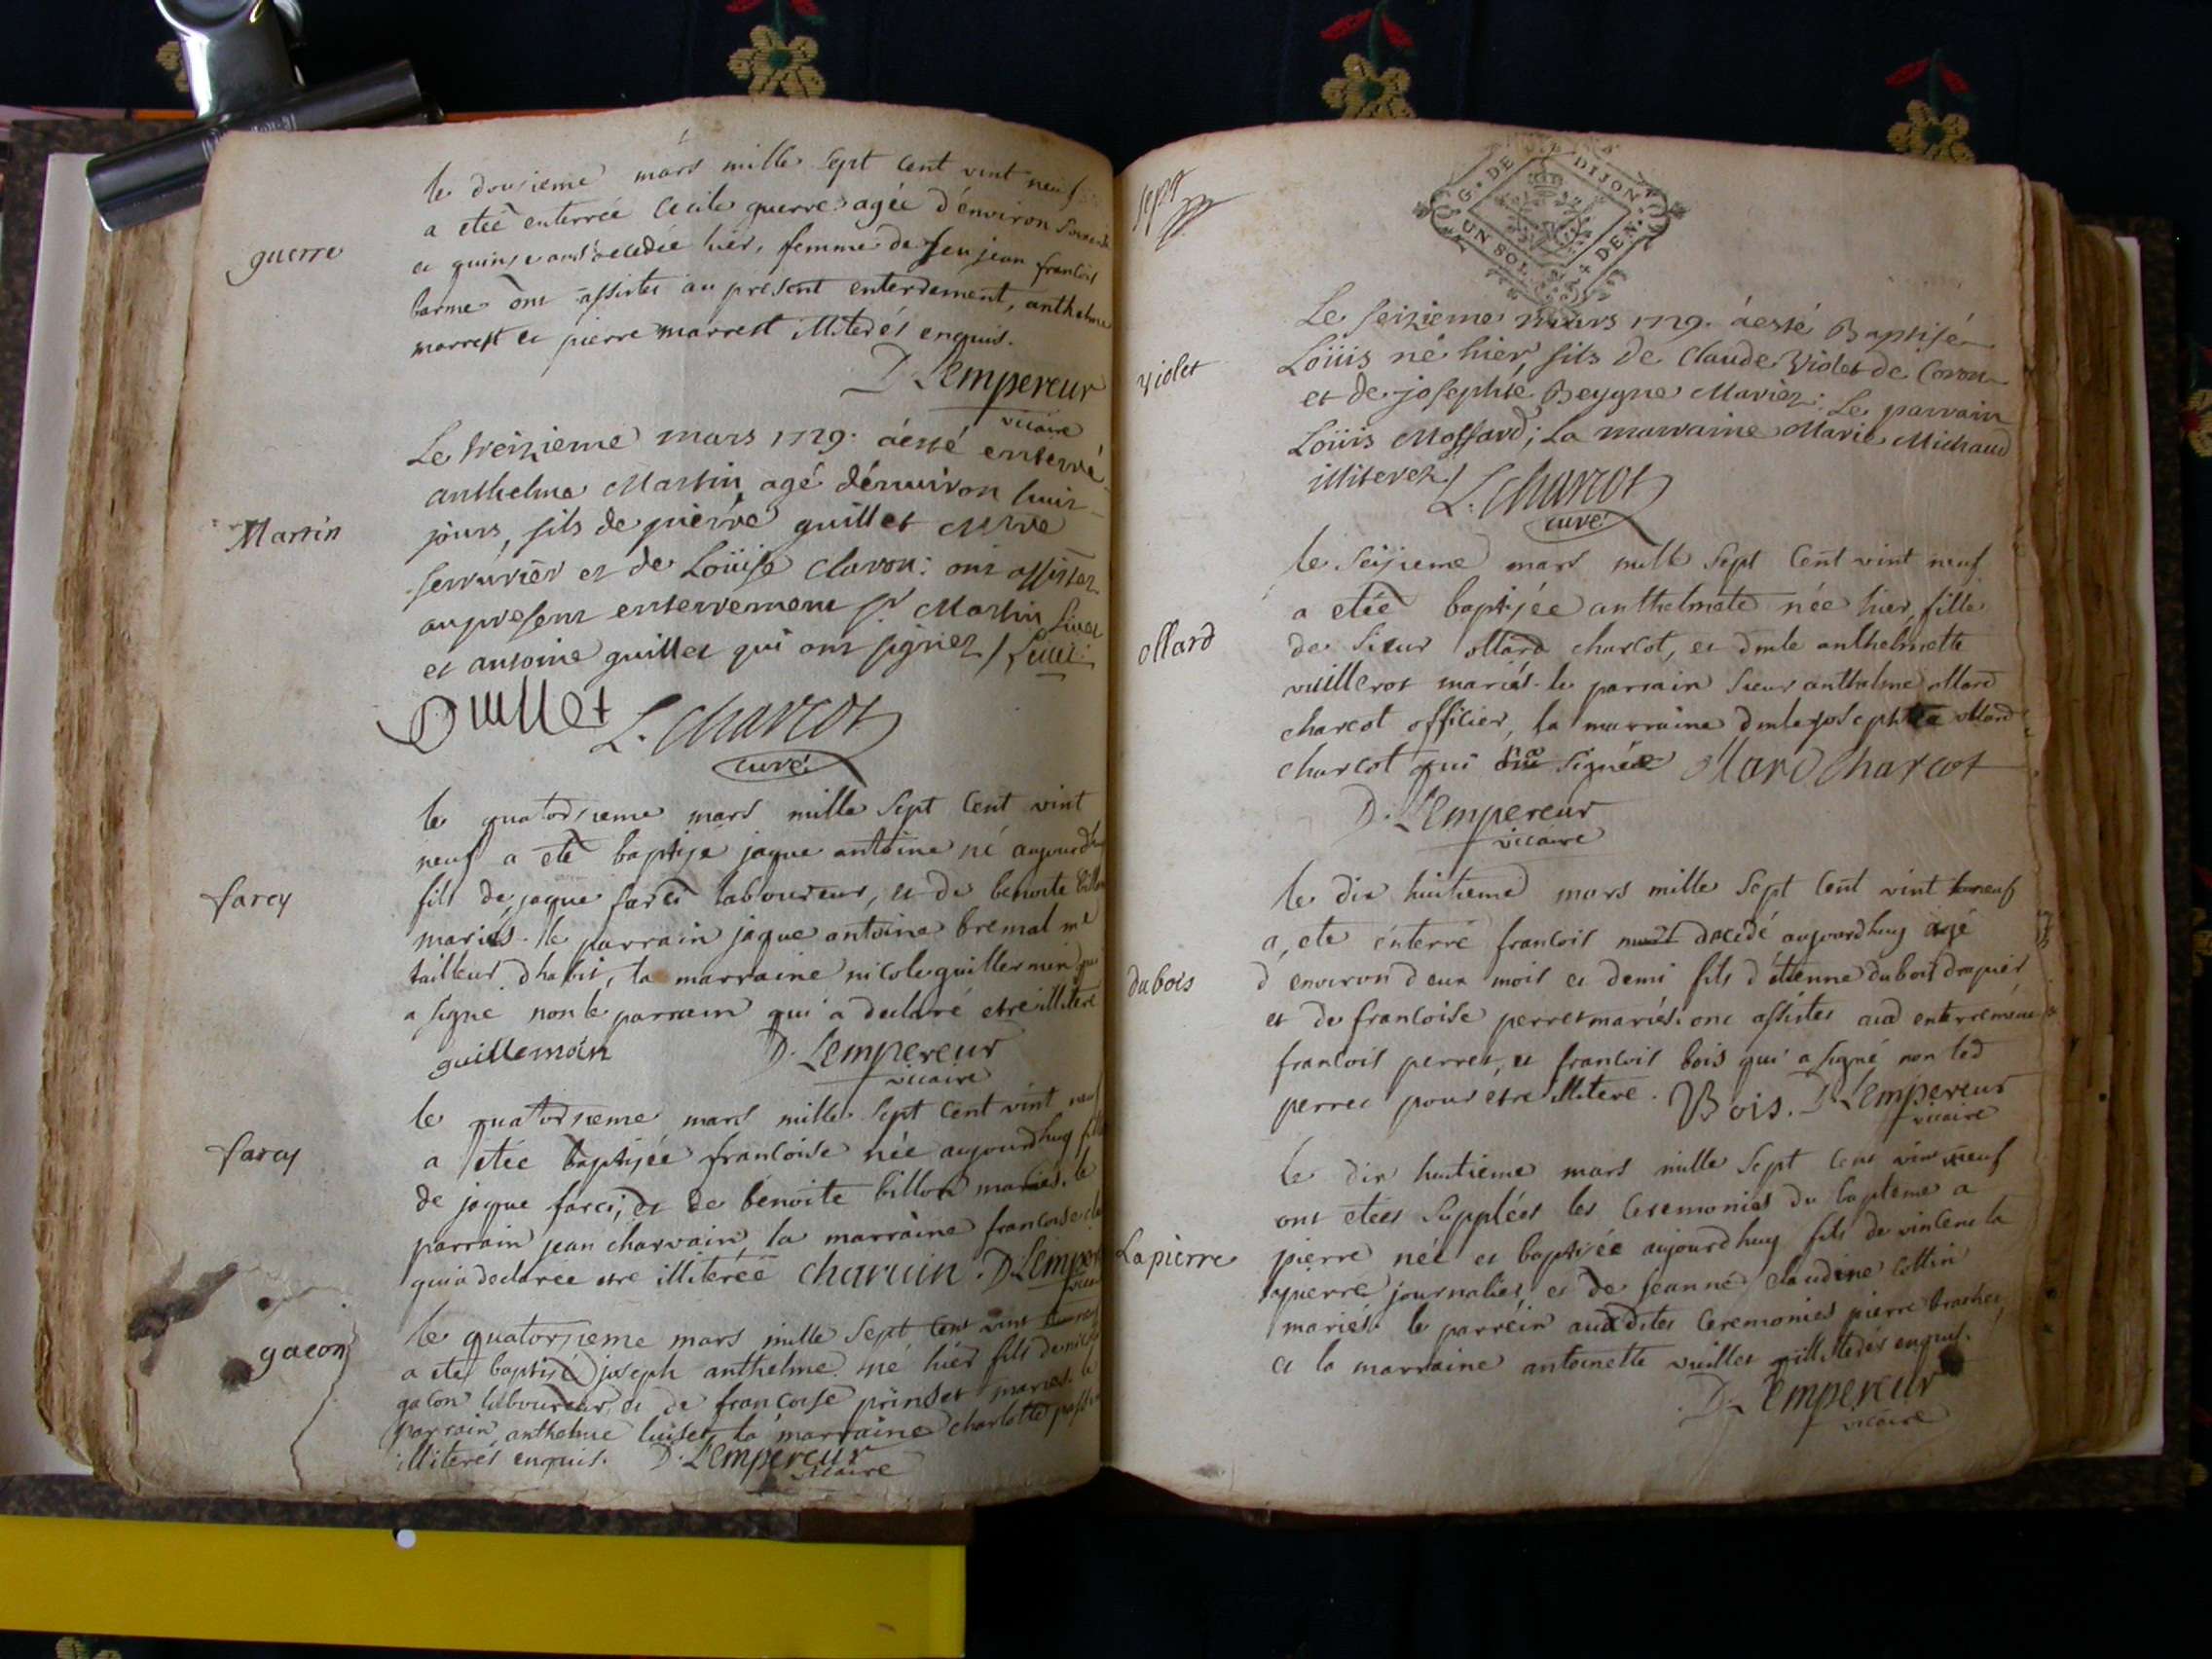 le dousieme mars mille sept cent vint neuf
a eteé enterreé Cecile guerre agéé d'environ
guerre
et quinse ans decedée hier, femme de feu jean francois
barme ont assistes au present enterrement, anthelme
marrest et pierre marrest illiterés enquis.
D. Lempereur
vicaire
Le treizieme mars 1729. a esté enterré
anthelme Martin agé d'enuiron huit
Martin
jours, fils de pierre guillet
serrurier et de Loüise Clavon: ont assistez
au present enterrement Sr. Martin
et antoine guillet qui ont signez /
Guillet L. Charcot
curé
le quatorsieme mars mille sept cent vint
neuf a eté baptisé jaque antoine né aujourdh
farcy
fils de jaque farci laboureur, et de benoite billon
mariés. le parrain jaque antoine bremal me
tailleur d'habit, la marraine nicole guillermin qui
a signé non le parrain qui a declaré etre illiteré
guillemoin D. Lempereur
vicaire
le quatorsieme mars mille sept cent vint neuf
farcy
a eteé baptiseé francoise neé aujourdhuy fille
de jaque farci, et de benoite billon mariés. le
parrain jean charvain la marraine francoise
qui a declareé etre illitereé charuin. D. Lemper
vicai
le quatorsieme mars mille sept cent vint
gacon
a eté baptisé joseph anthelme né hier fils de
gacon laboureur, et de francoise prinset mariés. le
parrain anthelme luiset, la marraine charlotte
illiterés enquis. D. Lempereur
vicaire
sept
G. DE DIJON
UN SOL 4 DEN.
Le seizieme mars 1729. a esté Baptisé
violet
Loüis né hier, fils de Claude Violet de Coron
et de josephte Beygne Mariez: Le parrain
Loüis Mossard; La marraine Marie Michaud
illiterez /
L. Charcot
curé
le seisieme mars mille sept cent vint neuf
a eteé baptiseé anthelmete neé hier, fille
ollard
de sieur ollard charcot, et dmle anthelmette
vuillerot mariés. le parrain sieur anthelme ollard
charcot officier, la marraine dmle josephte ollard
charcot qui signée Ollard Charcot
D. Lempereur
vicaire
le dix huitieme mars mille sept cent vint neuf
a eté enterré francois decedé aujourdhuy agé
dubois
d'environ deux mois et demi fils d'etienne dubois drapier
et de francoise perret mariés. ont assistes aud enterrement
francois perret, et francois bois qui a signé non led
perret pour etre illiteré. Bois. D. Lempereur
vicaire
le dix huitieme mars mille sept cent vint neuf
ont eteés suppleés les ceremonies du bapteme a
Lapierre
pierre neé et baptiseé aujourdhuy fils de vincent la
pierre journalier, et de jeanne claudine cottin
mariés. le parrein auxdites ceremonies pierre
et la marraine antoinette vuillet illiterés enquis.
D. Lempereur
vicaire